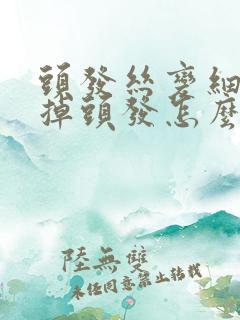 頭發絲變細
掉頭發怎麼
陸無雙
未經同意禁止轉載